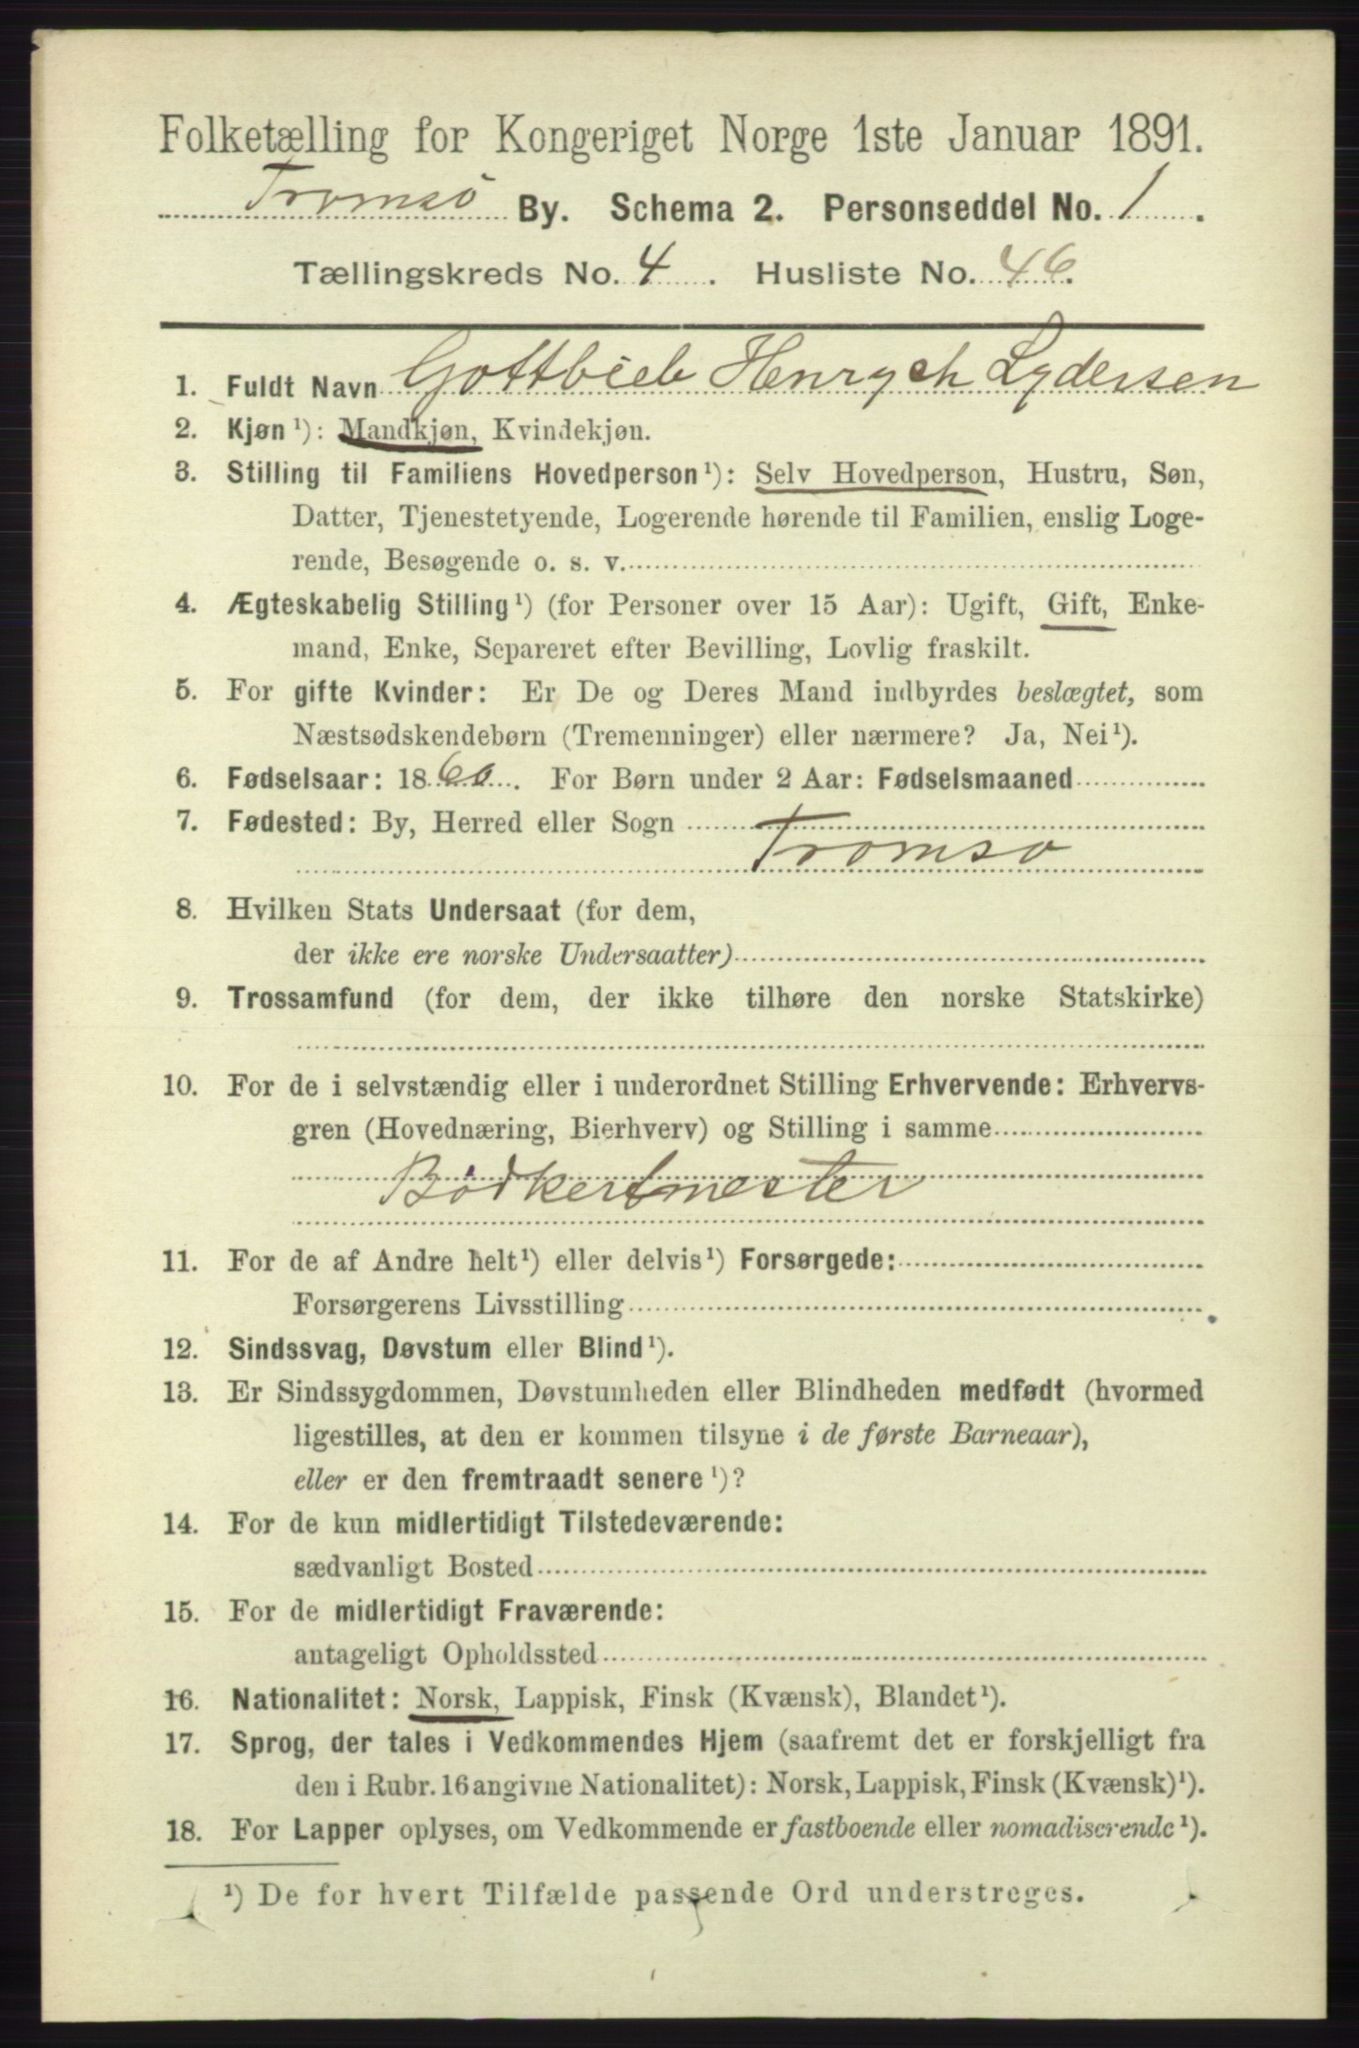 Folketælling for Kongeriget Norge 1ste Januar 1891.
Tromsö By. Schema 2. Personseddel No. 1.
Tællingskreds No. 4. Husliste No. 46.
1. Fuldt Navn Gottbieb Henrych Lydersen
2. Kjøn¹): Mandkjøn, Kvindekjøn.
3. Stilling til Familiens Hovedperson¹): Selv Hovedperson, Hustru, Søn,
Datter, Tjenestetyende, Logerende hørende til Familien, enslig Loge-
rende, Besøgende o. s. v.
4. Ægteskabelig Stilling¹) (for Personer over 15 Aar): Ugift, Gift, Enke-
mand, Enke, Separeret efter Bevilling, Lovlig fraskilt.
5. For gifte Kvinder: Er De og Deres Mand indbyrdes beslægtet, som
Næstsødskendebørn (Tremenninger) eller nærmere? Ja, Nei¹).
6. Fødselsaar: 1860. For Børn under 2 Aar: Fødselsmaaned
7. Fødested: By, Herred eller Sogn
Tromsö
8. Hvilken Stats Undersaat (for dem,
der ikke ere norske Undersaatter)
9. Trossamfund (for dem, der ikke tilhøre den norske Statskirke)
10. For de i selvstændig eller i underordnet Stilling Erhvervende: Erhvervs-
gren (Hovednæring, Bierhverv) og Stilling i samme
Bödkermester
11. For de af Andre helt¹) eller delvis¹) Forsørgede:
Forsørgerens Livsstilling
12. Sindssvag, Døvstum eller Blind¹).
13. Er Sindssygdommen, Døvstumheden eller Blindheden medfødt (hvormed
ligestilles, at den er kommen tilsyne i de første Barneaar),
eller er den fremtraadt senere¹)?
14. For de kun midlertidigt Tilstedeværende:
sædvanligt Bosted
15. For de midlertidigt Fraværende:
antageligt Opholdssted
16. Nationalitet: Norsk, Lappisk, Finsk (Kvænsk), Blandet¹).
17. Sprog, der tales i Vedkommendes Hjem (saafremt det er forskjelligt fra
den i Rubr. 16 angivne Nationalitet): Norsk, Lappisk, Finsk (Kvænsk)¹).
18. For Lapper oplyses, om Vedkommende er fastboende eller nomadiserende¹).
¹) De for hvert Tilfælde passende Ord understreges.